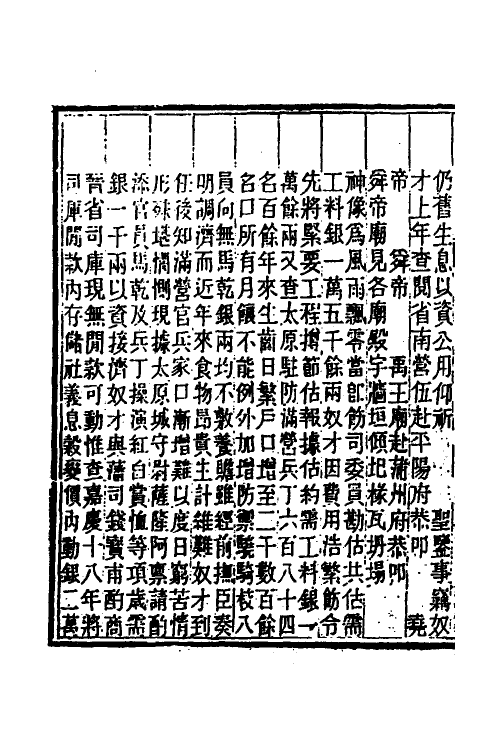 仍舊生息以資公用仰祈　聖鑒事竊奴
才上年查閱省南營伍赴平陽府恭叩　堯
帝　舜帝　禹王廟赴蒲州府恭叩
舜帝廟見各廟殿宇牆垣傾圮椽瓦坍塌
神像為風雨飄零當卽飭司委員勘估共估需
工料銀一萬五千餘兩奴才因費用浩繁飭令
先將緊要工程撙節估報據估約需工料銀一
萬餘兩又查太原駐防滿營兵丁六百八十四
名百餘年來生齒日繁戶口增至二千數百餘
名口所有月餉不能例外加增防禦驍騎校八
員向無馬乾銀兩均不敷養贍雖經前撫臣奏
明調濟而近年來食物昂貴生計維難奴才到
任後知滿營官兵家口漸增難以度日窮苦情
形殊堪憫惻現據太原城守尉薩隆阿稟請酌
添官員馬乾及兵丁操演紅白賞恤等項歲需
銀一千兩以資接濟奴才與藩司錢寶甫酌商
晉省司庫現無閒款可動惟查嘉慶十八年將
司庫閒款內存儲社義息穀變價內動銀二萬